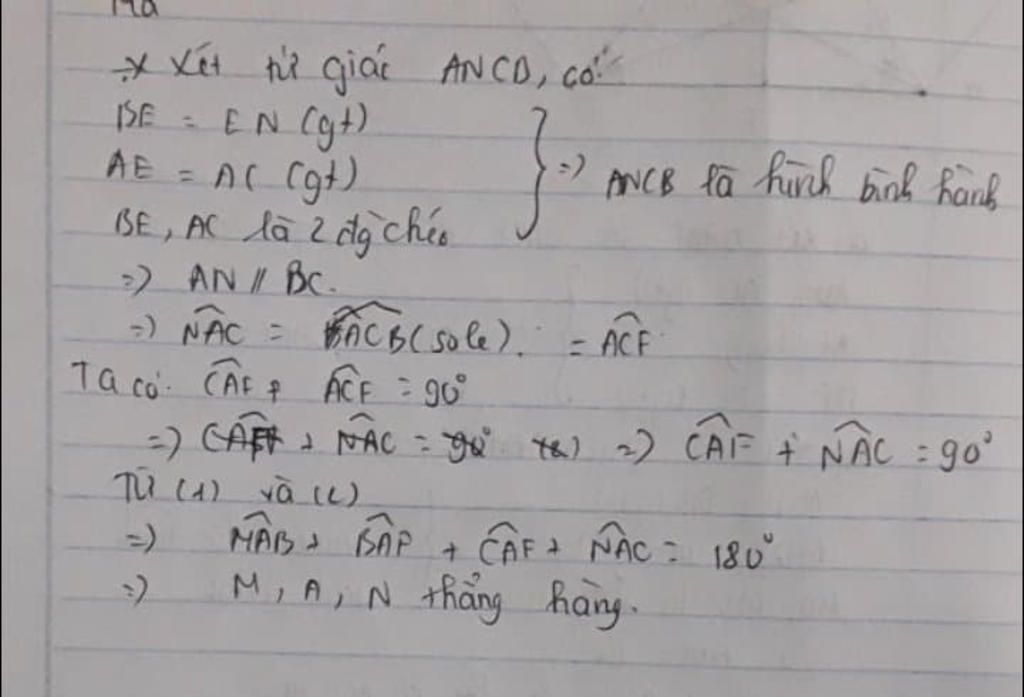 Mà
* Xét tứ giác ANCD, có:
BE = EN (gt)
AE = AC (gt)
BE, AC là 2 đg chéo
=> ANCB là hình bình hành
=> AN // BC.
=> NAC = ACB (sole). = ACF
Ta có: CAF + ACF = 90°
=> CAF + NAC = 90° => CAF + NAC = 90°
Từ (1) và (2)
=> MAB + BAF + CAF + NAC = 180°
=> M, A, N thẳng hàng.